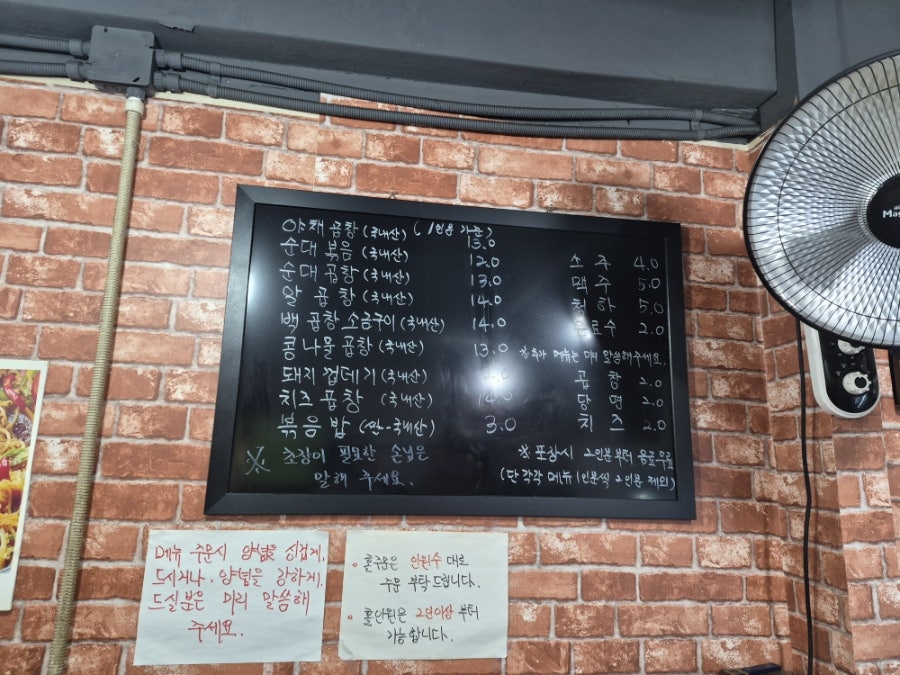 야채곱창 (국내산) (1인분 가능) 13.0
순대볶음 (국내산) 12.0
순대곱창 (국내산) 13.0
알 곱창 (국내산) 14.0
백 곱창 소금구이 (국내산) 14.0
콩나물 곱창 (국내산) 13.0
돼지 껍데기 (국내산)
치즈 곱창 (국내산) 14.0
볶음밥 (쌀-국내산) 3.0
※ 초장이 필요한 손님은
말해 주세요.
소주 4.0
맥주 5.0
청하 5.0
음료수 2.0
※ 추가 메뉴는 미리 말씀해주세요.
곱창 2.0
당면 2.0
치즈 2.0
※ 포장시 2인분부터 음료무료
(단 각각 메뉴 1인분씩 2인분 제외)
메뉴 주문시 양념을 싱겁게,
드시거나, 양념을 강하게,
드실분은 미리 말씀해
주세요.
홀주문은 인원수 대로
주문 부탁드립니다.
홀안원은 2인이상 부터
가능합니다.